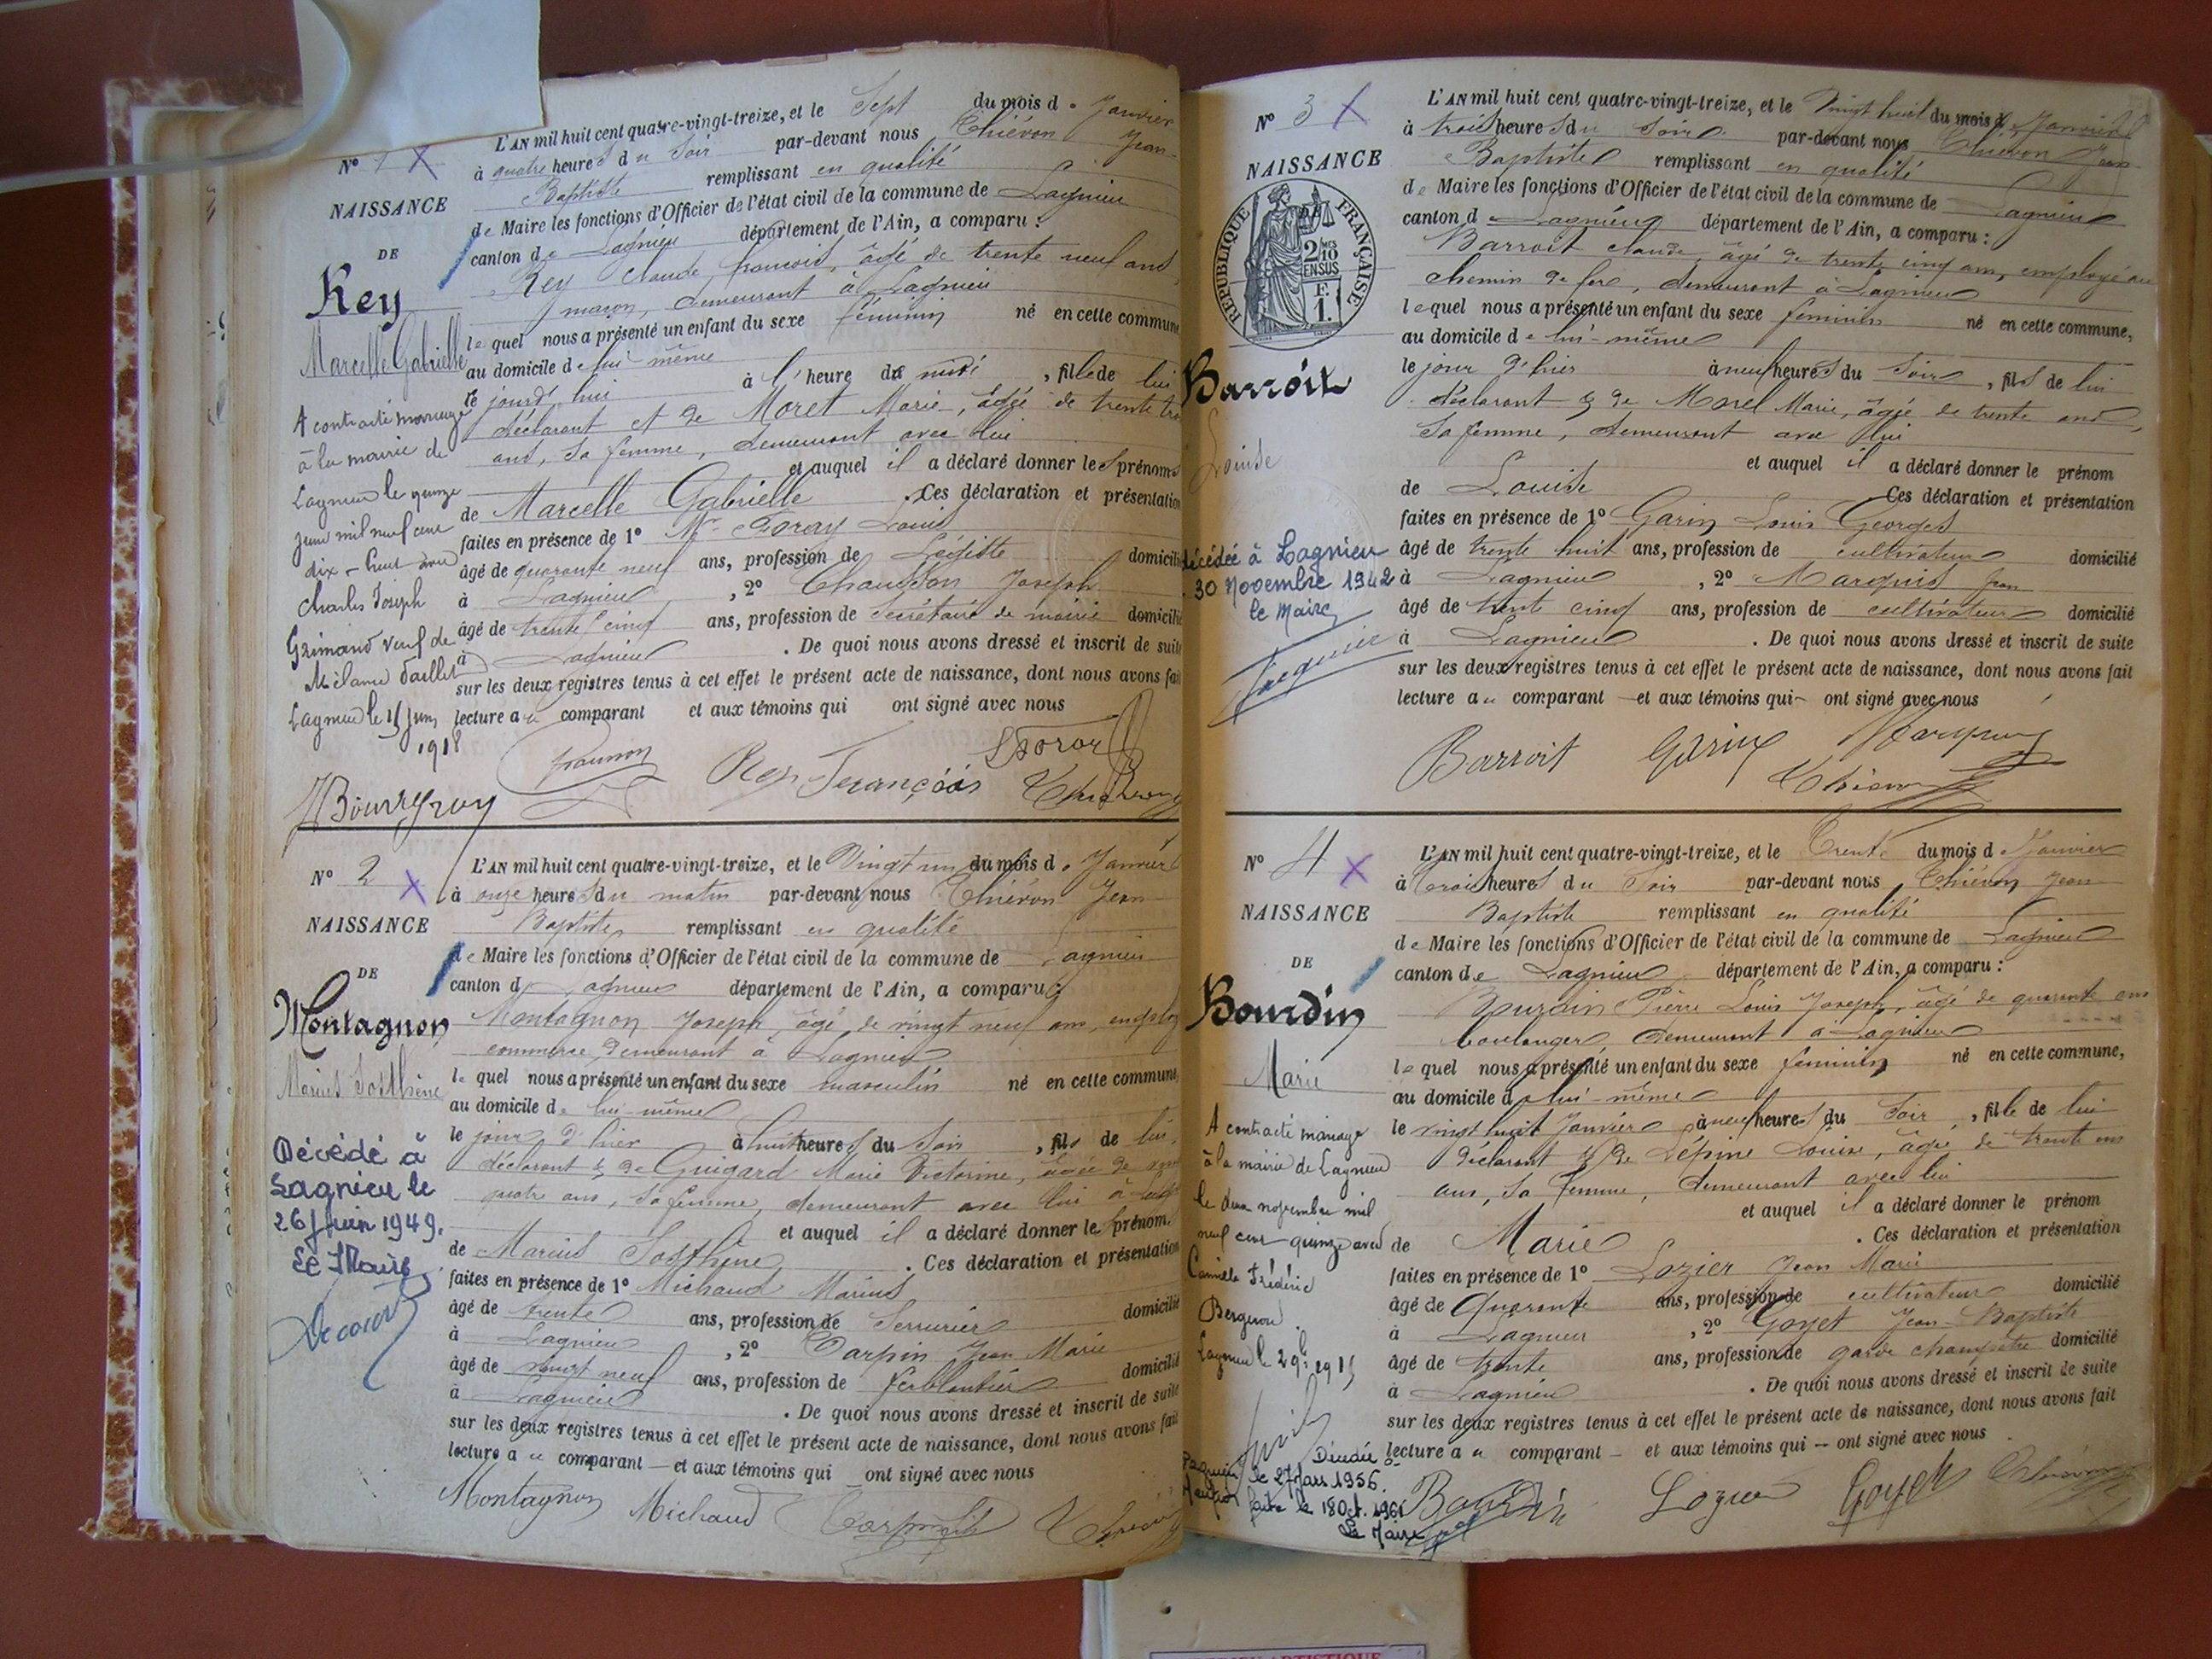 L'AN mil huit cent quatre-vingt-treize, et le Sept du mois de Janvier
N° 1 X
à quatre heures du Soir par-devant nous Thiévon Jean-
Baptiste remplissant en qualité
NAISSANCE
de Maire les fonctions d'Officier de l'état civil de la commune de Lagnieu
DE
canton de Lagnieu département de l'Ain, a comparu :
Rey
Rey Claude françois, âgé de trente neuf ans,
maçon, demeurant à Lagnieu
Marcelle Gabrielle
lequel nous a présenté un enfant du sexe féminin né en cette commune
au domicile de lui-même
le jourd'hui à l'heure de midi, fille de lui
déclarant et de Moret Marie, âgée de trente
ans, sa femme, demeurant avec lui
et auquel il a déclaré donner les prénoms
de Marcelle Gabrielle. Ces déclaration et présentation
faites en présence de 1° Mr Louis
âgé de quarante neuf ans, profession de domicilié
à Lagnieu, 2° Joseph
âgé de trente cinq ans, profession de Secrétaire de mairie domicilié
à Lagnieu. De quoi nous avons dressé et inscrit de suite
sur les deux registres tenus à cet effet le présent acte de naissance, dont nous avons fait
lecture au comparant et aux témoins qui ont signé avec nous
A contracté mariage
à la mairie de
Lagnieu le quinze
juin mil neuf cent
dix-huit avec
Charles Joseph
Grimand veuf de
Lagnieu le 15 Juin
1918
Rey François
N° 2 X
L'AN mil huit cent quatre-vingt-treize, et le Vingt un du mois de Janvier
à onze heures du matin par-devant nous Thiévon Jean
Baptiste remplissant en qualité
NAISSANCE
de Maire les fonctions d'Officier de l'état civil de la commune de Lagnieu
DE
canton de Lagnieu département de l'Ain, a comparu :
Montagnon
Montagnon Joseph, âgé de vingt neuf ans,
commerce, demeurant à Lagnieu
Marius Sosthène
lequel nous a présenté un enfant du sexe masculin né en cette commune
au domicile de lui-même
le jour d'hier à huit heures du Soir, fils de lui,
déclarant & de Guigard Marie Victorine, âgée de
quatre ans, sa femme, demeurant avec lui à
et auquel il a déclaré donner le prénom
de Marius Sosthène. Ces déclaration et présentation
faites en présence de 1° Michaud Marius
âgé de trente ans, profession de Serrurier domicilié
à Lagnieu, 2° Carpin Jean Marie
âgé de vingt neuf ans, profession de ferblantier domicilié
à Lagnieu. De quoi nous avons dressé et inscrit de suite
sur les deux registres tenus à cet effet le présent acte de naissance, dont nous avons fait
lecture au comparant et aux témoins qui ont signé avec nous
Décédé à
Lagnieu le
26 Juin 1949.
Le Maire
Montagnon Michaud
N° 3 X
L'AN mil huit cent quatre-vingt-treize, et le Vingt huit du mois de Janvier
à trois heures du Soir par-devant nous Thiévon Jean-
Baptiste remplissant en qualité
NAISSANCE
de Maire les fonctions d'Officier de l'état civil de la commune de Lagnieu
DE
canton de Lagnieu département de l'Ain, a comparu :
RÉPUBLIQUE FRANÇAISE
2/10 EN SUS
F. 1.
Barroit Claude, âgé de trente cinq ans, employé au
chemin de fer, demeurant à Lagnieu
lequel nous a présenté un enfant du sexe féminin né en cette commune,
au domicile de lui-même
Barroit
le jour d'hier à neuf heures du Soir, fils de lui
déclarant & de Morel Marie, âgée de trente ans,
sa femme, demeurant avec lui
Louise
et auquel il a déclaré donner le prénom
de Louise Ces déclaration et présentation
faites en présence de 1° Garin Louis Georges
âgé de trente huit ans, profession de cultivateur domicilié
à Lagnieu, 2° Marquis Jean
âgé de trente cinq ans, profession de cultivateur domicilié
à Lagnieu. De quoi nous avons dressé et inscrit de suite
sur les deux registres tenus à cet effet le présent acte de naissance, dont nous avons fait
lecture au comparant et aux témoins qui ont signé avec nous
décédée à Lagnieu
30 Novembre 1942
le Maire
Barroit Garin
N° 4 X
L'AN mil huit cent quatre-vingt-treize, et le Trente du mois de Janvier
à trois heures du Soir par-devant nous Thiévon Jean
Baptiste remplissant en qualité
NAISSANCE
de Maire les fonctions d'Officier de l'état civil de la commune de Lagnieu
DE
canton de Lagnieu département de l'Ain, a comparu :
Bourdin
Bourdin Pierre Louis Joseph, âgé de quarante ans
boulanger demeurant à Lagnieu
lequel nous a présenté un enfant du sexe féminin né en cette commune,
Marie
au domicile de lui-même
le vingt huit Janvier à neuf heures du Soir, fille de lui
déclarant & de Lépine Louise, âgée de trente
ans, sa femme, demeurant avec lui
et auquel il a déclaré donner le prénom
de Marie. Ces déclaration et présentation
faites en présence de 1° Lozier Jean Marie
âgé de Quarante ans, profession de cultivateur domicilié
à Lagnieu, 2° Goyet Jean-Baptiste
âgé de trente ans, profession de garde champêtre domicilié
à Lagnieu. De quoi nous avons dressé et inscrit de suite
sur les deux registres tenus à cet effet le présent acte de naissance, dont nous avons fait
lecture au comparant et aux témoins qui ont signé avec nous
A contracté mariage
à la mairie de Lagnieu
le deux novembre mil
neuf cent quinze avec
Camille Frédéric
Bergeron
Décédée à
Lagnieu le 27 Mars 1956.
Mention faite le 18 Oct. 1961
Le Maire
Bourdin Lozier Goyet